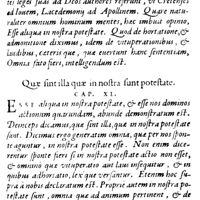 tes leges suas ad Deos authores referunt, vt Cretenses
ad Iouem, Lacedæmony ad Apollinem. Quare natu-
raliter omnium hominum mentes, hec imbuit opinio,
Esse aliqua in nostra potestate. Quod de hortatione, &
admonitione diximus, idem de vituperationibus, &
laudibus, ceterisque, que euertunt hanc sententiam,
Omnia fato fieri, intelligendum est.
Quæ sint illa quæ in nostra sunt potestate.
CAP. XL.
ESSE aliqua in nostra potestate, & esse nos dominos
actionum quarundam, abunde demonstratum est.
Deinceps dicamus, que sint illa, que in nostra potestate
sunt. Dicimus ergo generatim omnia, que per nos spon-
te aguntur, in nostra potestate esse. Non enim dice-
rentur sponte fieri si in nostra potestate actio non esset,
& omnino que vituperatio aut laus insequitur, & in
quibus adhortatio, lex que versantur. Etenim hoc su-
pra à nobis declaratum est. Proprie autem in nostra po-
testate sunt, omnia que ad animum pertinent, & de